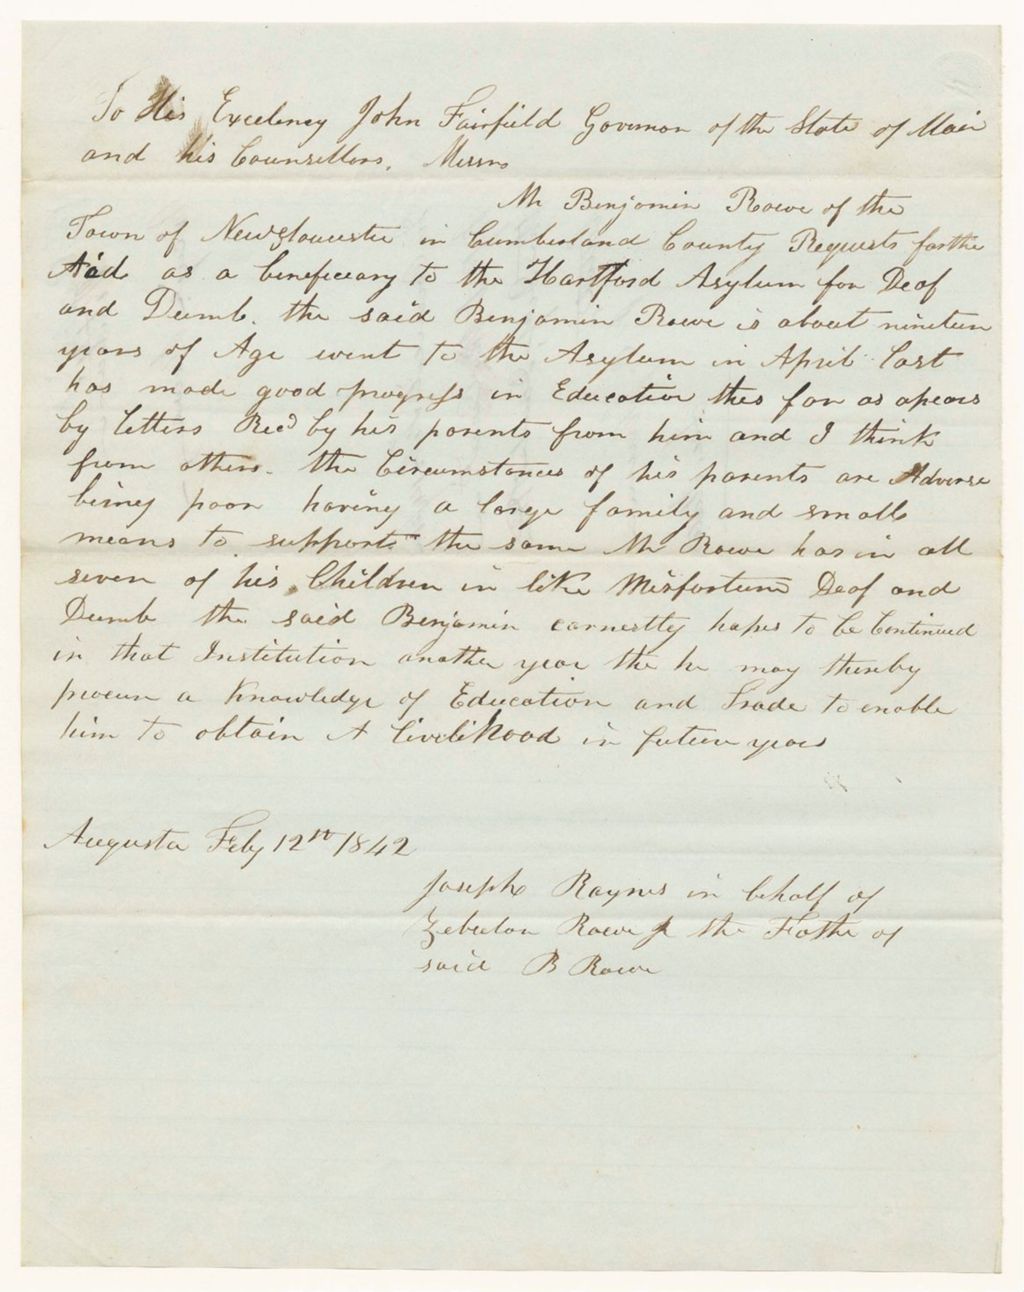 To His Excelency John Fairfield Governor of the State of Main
and his Counsellors. Messrs
Mr Benjamin Rowe of the
Town of New Gloucester in Cumberland County Requests for the
Aid as a beneficiary to the Hartford Asylum for Deaf
and Dumb. the said Benjamin Rowe is about nineteen
years of Age went to the Asylum in April last
has made good progress in Education thus far as apears
by letters Recd by his parents from him and I think
from others. the Circumstances of his parents are Adverse
being poor having a large family and small
means to support the same Mr Rowe has in all
seven of his Children in like Misfortune Deaf and
Dumb the said Benjamin earnestly hopes to be Continued
in that Institution another year the he may thereby
procure a Knowledge of Education and Trade to enable
him to obtain A livelihood in future years
Augusta Feby 12th 1842
Joseph Raynes in behalf of
Zebulon Rowe the Father of
said B Rowe